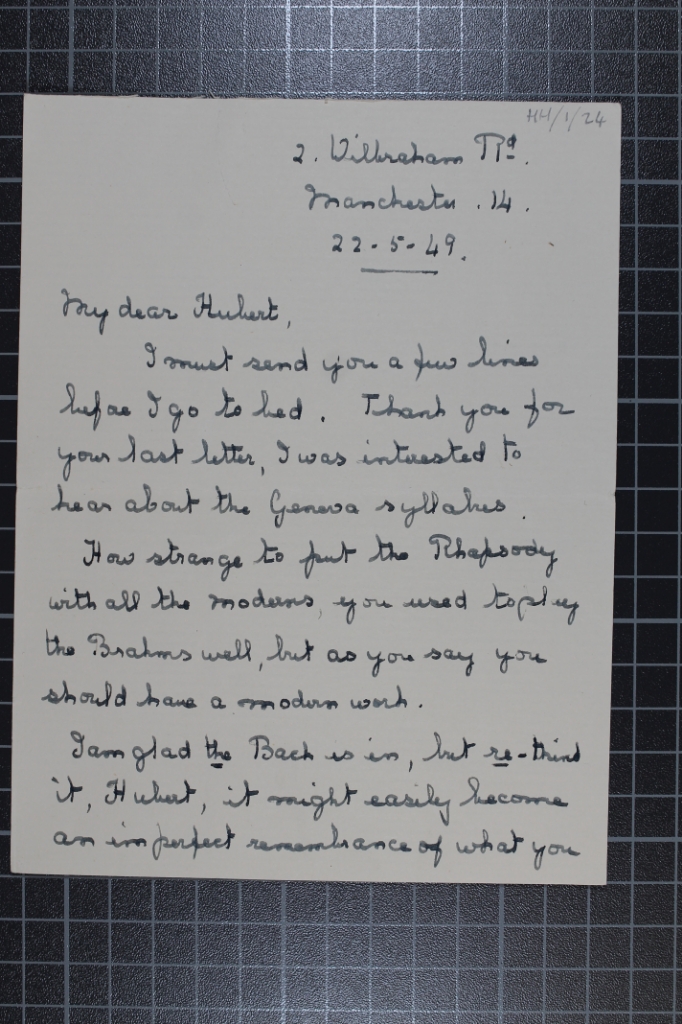 HH/1/24
2. Wilbraham Rd.
Manchester . 14 .
22-5-49.
My dear Hubert,
I must send you a few lines
before I go to bed. Thank you for
your last letter, I was interested to
hear about the Geneva syllabus.
How strange to put the Rhapsody
with all the moderns, you used to play
the Brahms well, but as you say you
should have a modern work.
I am glad the Bach is in, but re-think
it, Hubert, it might easily become
an imperfect remembrance of what you